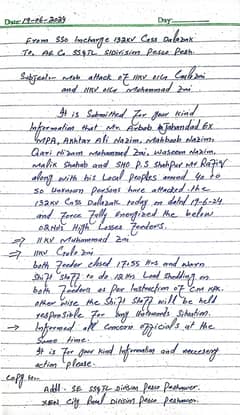 Date: 19-06-2024 Day:
From SSO Incharge 132KV Grss Dalazak
To, AE Co SS&TL S/Division Pesco Pesh.
Subject:- Mob attack of 11KV
and 11KV Mohammad Zai
It is Submitted for your kind
Information that Mr. Arbab Jahandad Ex
MPA, Akhtar Ali Nazim, Mahboob Nazim,
Qari Nizam Mohammad Zai, Waseem Nazim,
Malik Shahab and SHO P.S Shahpur Mr Rafiq
along with his Local Peoples around 40 to
50 unknown Persons have attacked the
132KV Grss Dalazak today on dated 19-6-24
and Force fully Energized the below
Higher Losses feeders.
⇒ 11KV Muhammad Zai
⇒ 11KV
both feeder closed 17:55 Hrs and warn
Shift Staff to do 12Hrs Load Shedding on
both feeders as Per Instruction of CM KPK.
other wise the Shift Staff will be held
responsible for any Situation.
→ Informed all Concern officials at the
Same time.
It is for your kind Information and necessary
action please.
Copy to:-
Addl. SE SS&TL Division Pesco Peshawar.
XEN City Rural Division Pesco Peshawar.